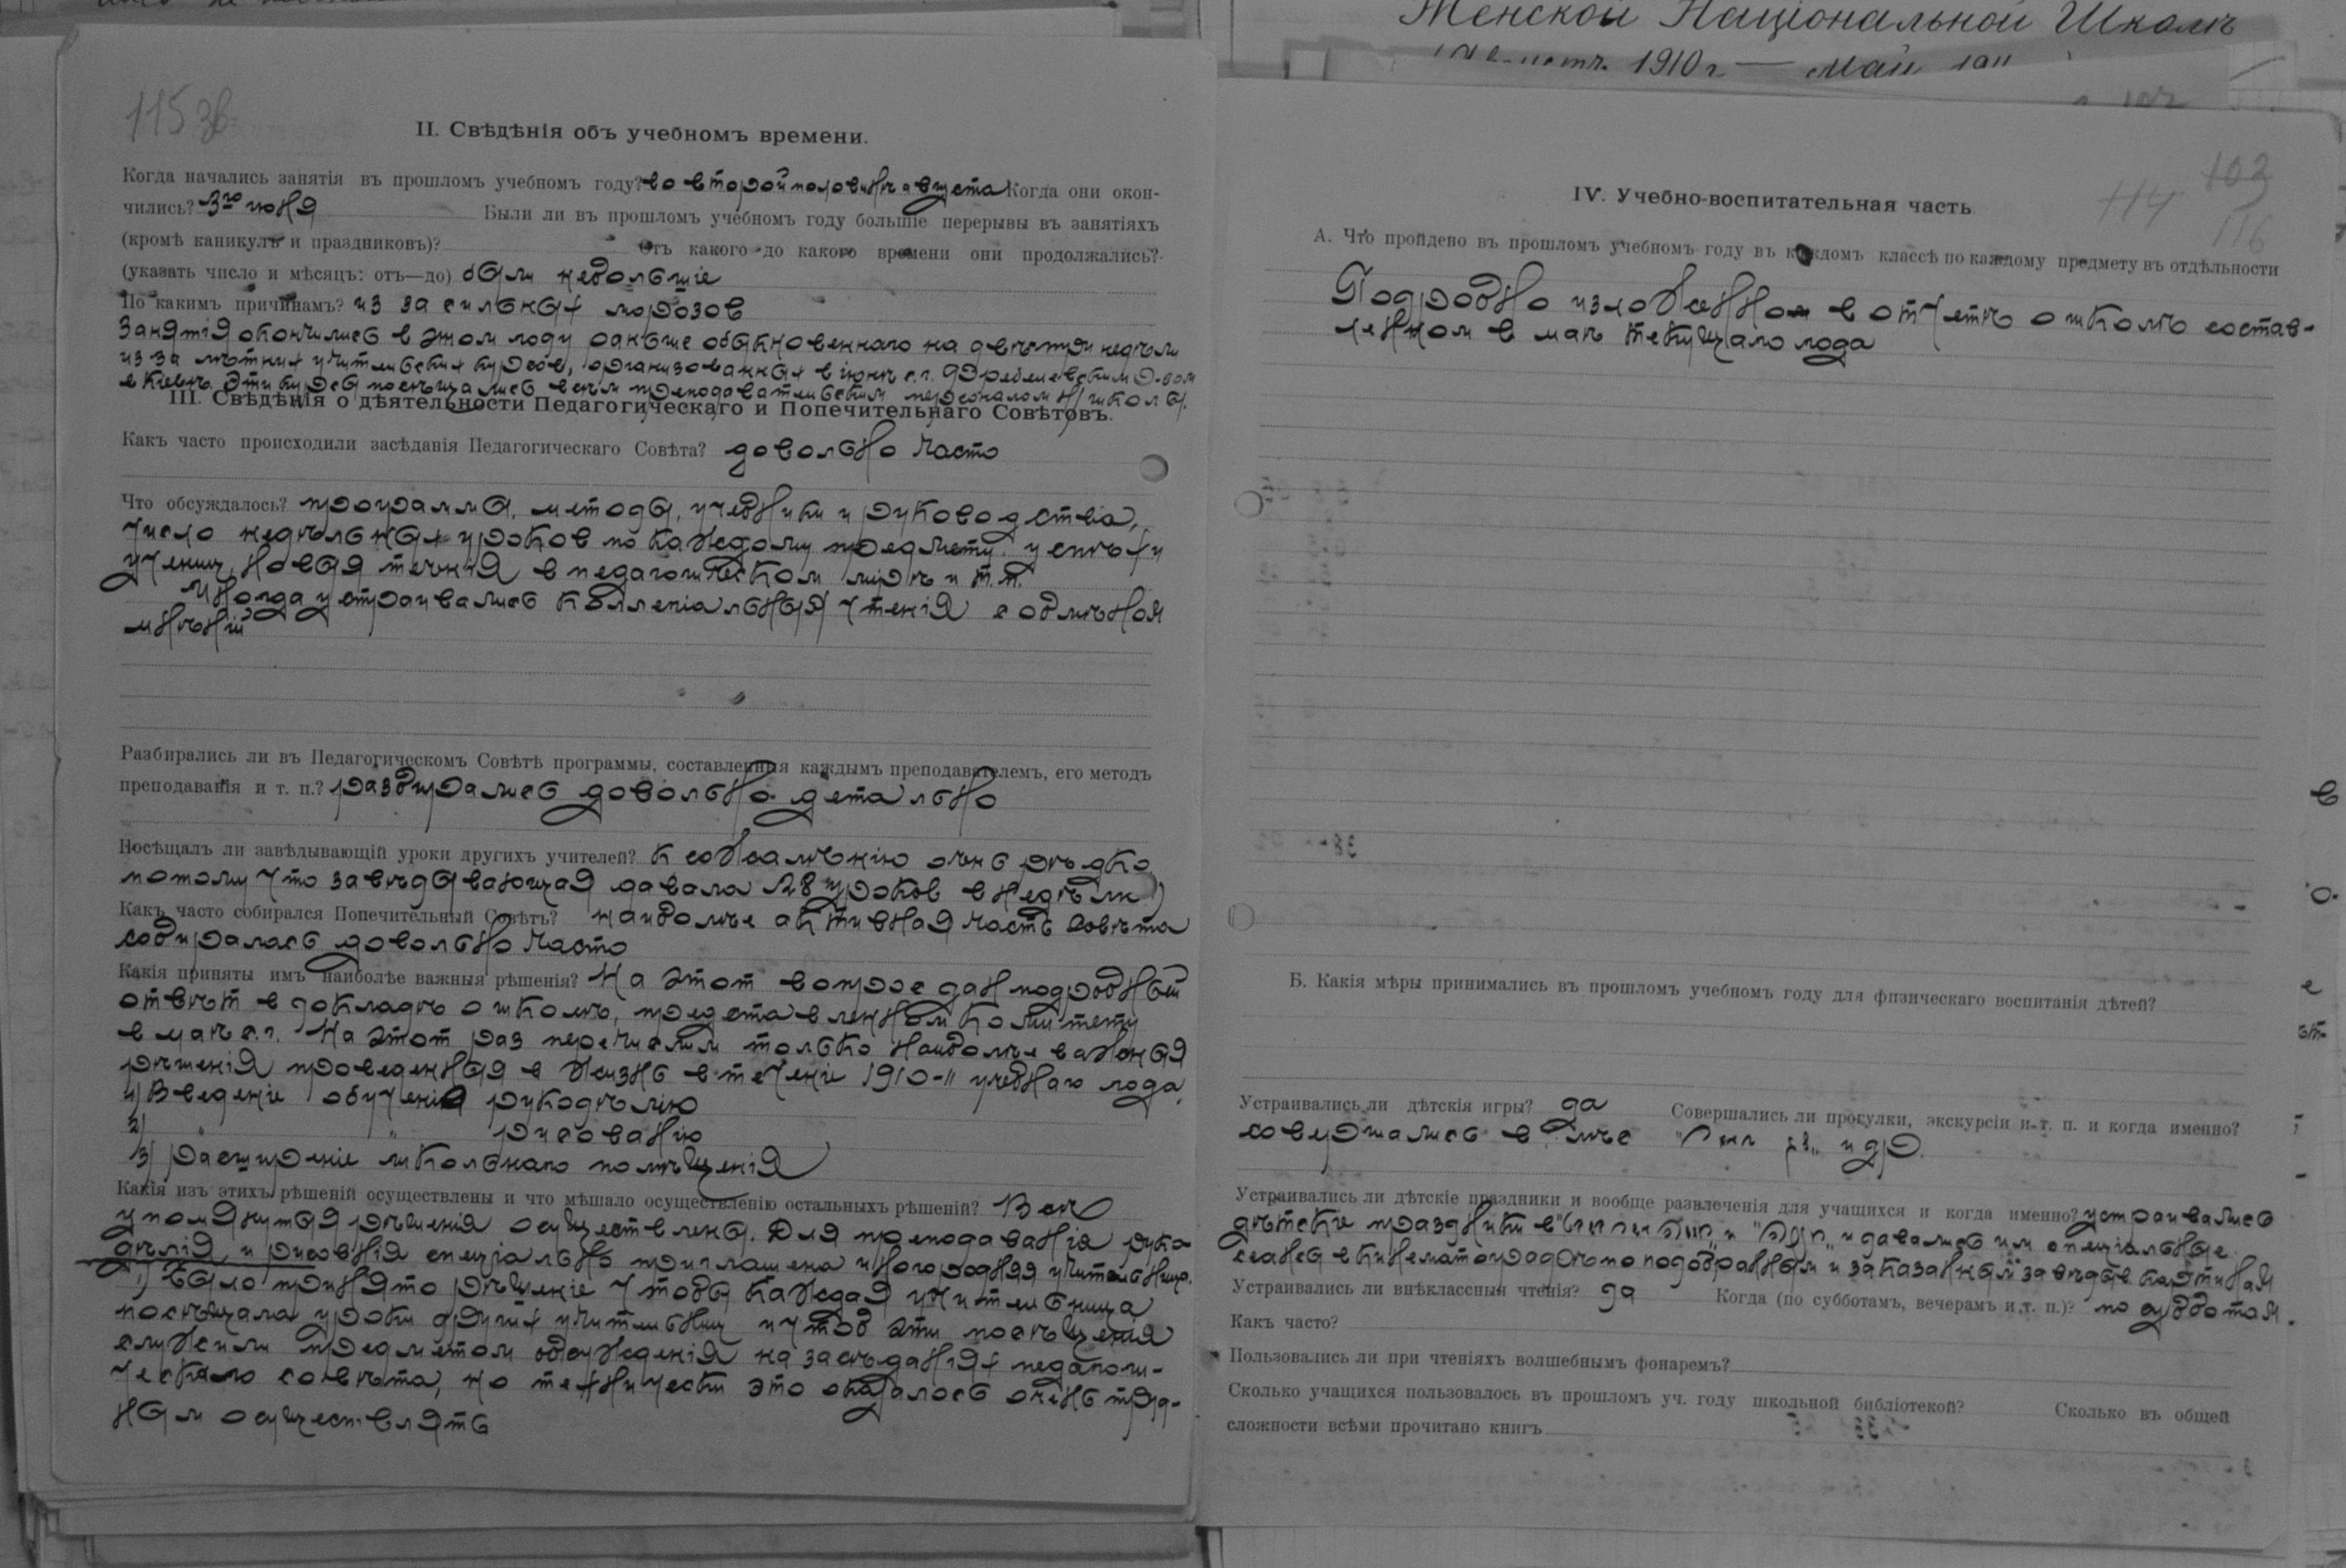 Женской Національной Школѣ
1910 г. — Май 1911
115 зв.
II. Свѣдѣнія объ учебномъ времени.
Когда начались занятія въ прошломъ учебномъ году? во второй половинѣ августа Когда они окон-
чились? 3го июня Были ли въ прошломъ учебномъ году большіе перерывы въ занятіяхъ
(кромѣ каникулъ и праздниковъ)? Отъ какого до какого времени они продолжались?
(указать число и мѣсяцъ: отъ—до) были небольшіе
По какимъ причинамъ? из за сильных морозов
Занятія окончились в этом году раньше обыкновеннаго на двѣ-три недѣли
из за лѣтних учительских курсов, организованных в іюнѣ с.г. Фребелевским О-вом
в Кіевѣ. Эти курсы посѣщались всѣм преподавательским персоналом школы.
III. Свѣдѣнія о дѣятельности Педагогическаго и Попечительнаго Совѣтовъ.
Какъ часто происходили засѣданія Педагогическаго Совѣта? довольно часто
Что обсуждалось? программа, методы, учебники и руководства,
число недѣльных уроков по каждому предмету. успѣхи
учениц, новыя теченія в педагогическом мірѣ и т.п.
Иногда устраивались коллегіальныя чтенія с обмѣном
мнѣній
Разбирались ли въ Педагогическомъ Совѣтѣ программы, составленныя каждымъ преподавателемъ, его методъ
преподаванія и т. п.? разбирались довольно детально
Посѣщалъ ли завѣдывающій уроки другихъ учителей? К сожалѣнію очень рѣдко
потому что завѣдывающая давала 28 уроков в недѣлю 1)
Какъ часто собирался Попечительный Совѣтъ? наиболѣе активная часть совѣта
собиралась довольно часто
Какія приняты имъ наиболѣе важныя рѣшенія? На этот вопрос дан подробный
отвѣт в докладѣ о школѣ, представленном комитету
в маѣ с.г. На этот раз перечислим только наиболѣе важныя
рѣшенія проведенныя в жизнь в теченіе 1910-11 учебнаго года.
1) Введеніе обученія рукодѣлію
2) " " рисованію
3) Расширеніе школьнаго помѣщенія
Какія изъ этихъ рѣшеній осуществлены и что мѣшало осуществленію остальныхъ рѣшеній? Всѣ
упомянутыя рѣшенія осуществлены. Для преподаванія руко-
дѣлія и рисов-нія спеціально приглашена иногородняя учительница.
1) Было принято рѣшеніе чтобы каждая учительница
посѣщала уроки других учительниц и чтоб эти посѣщенія
служили предметом обсужденія на засѣданіях педагоги-
ческаго совѣта, но технически это оказалось очень труд-
ным осуществлять
103
114
116
IV. Учебно-воспитательная часть
А. Что пройдено въ прошломъ учебномъ году въ каждомъ классѣ по каждому предмету въ отдѣльности
Подробно изложенном в отчетѣ о школѣ состав-
ленном в маѣ текущаго года
Б. Какія мѣры принимались въ прошломъ учебномъ году для физическаго воспитанія дѣтей?
Устраивались ли дѣтскія игры? да Совершались ли прогулки, экскурсіи и т. п. и когда именно?
совершались в и др.
Устраивались ли дѣтскіе праздники и вообще развлеченія для учащихся и когда именно? устраивались
дѣтскіе праздники в и и давались им спеціальные
сеансы в кинематографѣ по подобранным и заказанным завѣдыв. картинам
Устраивались ли внѣклассныя чтенія? да Когда (по субботамъ, вечерамъ и т. п.)? по субботам.
Какъ часто?
Пользовались ли при чтеніяхъ волшебнымъ фонаремъ?
Сколько учащихся пользовалось въ прошломъ уч. году школьной библіотекой? Сколько въ общей
сложности всѣми прочитано книгъ